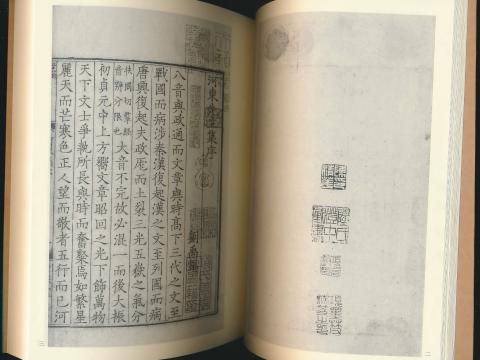 河東先生集序
劉禹錫
八音與政通而文章與時高下三代之文至
戰國而病涉秦漢復起漢之文至列國而病
唐興復起夫政厖而土裂三光五嶽之氣分
扶問切羣經
音辨分限也
大音不完故必混一而後大振
初貞元中上方嚮文章昭回之光下飾萬物
天下文士爭執所長與時而奮粲焉如繁星
麗天而芒寒色正人望而敬者五行而已河
二
三